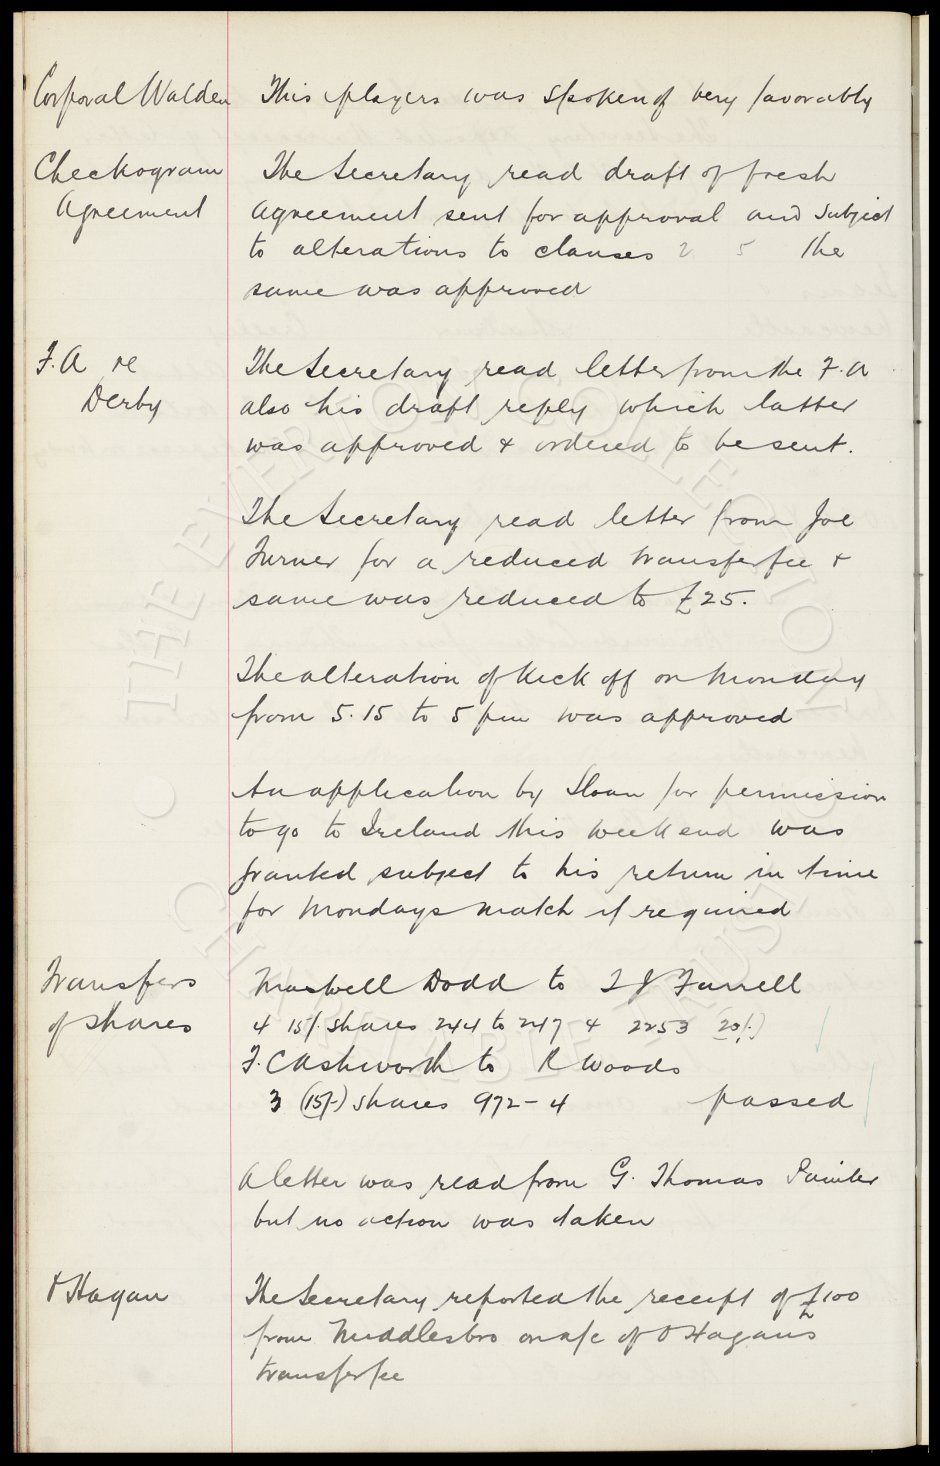 Corporal Walden This players was spoken of very favorably
Checkogram The Secretary read draft of fresh
Agreement agreement sent for approval and subject
to alterations to clauses 2 5 the
same was approved
F.A re The Secretary read letter from the F.A
Derby also his draft reply which latter
was approved & ordered to be sent.
The Secretary read letter from Joe
Turner for a reduced transfer fee &
same was reduced to £25.
The alteration of Kick off on Monday
from 5.15 to 5 pm was approved
An application by Sloan for permission
to go to Ireland this weekend was
granted subject to his return in time
for Mondays match if required
Transfers Maxwell Dodd to T J Farrell
of shares 4 15/- shares 244 to 247 & 2253 (20/-)
F. C Ashworth to R Woods
3 (15/-) shares 972-4 passed
A letter was read from G. Thomas Painter
but no action was taken
O Hagan The Secretary reported the receipt of £100
from Middlesbro on a/c of O Hagans
transfer fee
THE EVERTON COLLECTION
CHARITABLE TRUST